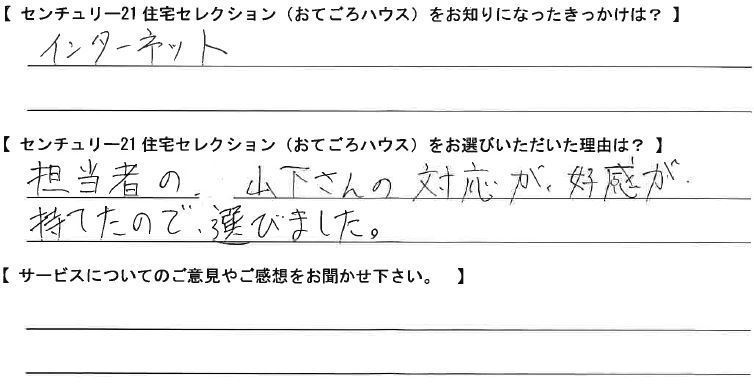 【 センチュリー21 住宅セレクション（おてごろハウス）をお知りになったきっかけは？ 】
インターネット
【 センチュリー21 住宅セレクション（おてごろハウス）をお選びいただいた理由は？ 】
担当者の、山下さんの対応が、好感が、
持てたので、選びました。
【 サービスについてのご意見やご感想をお聞かせ下さい。 】